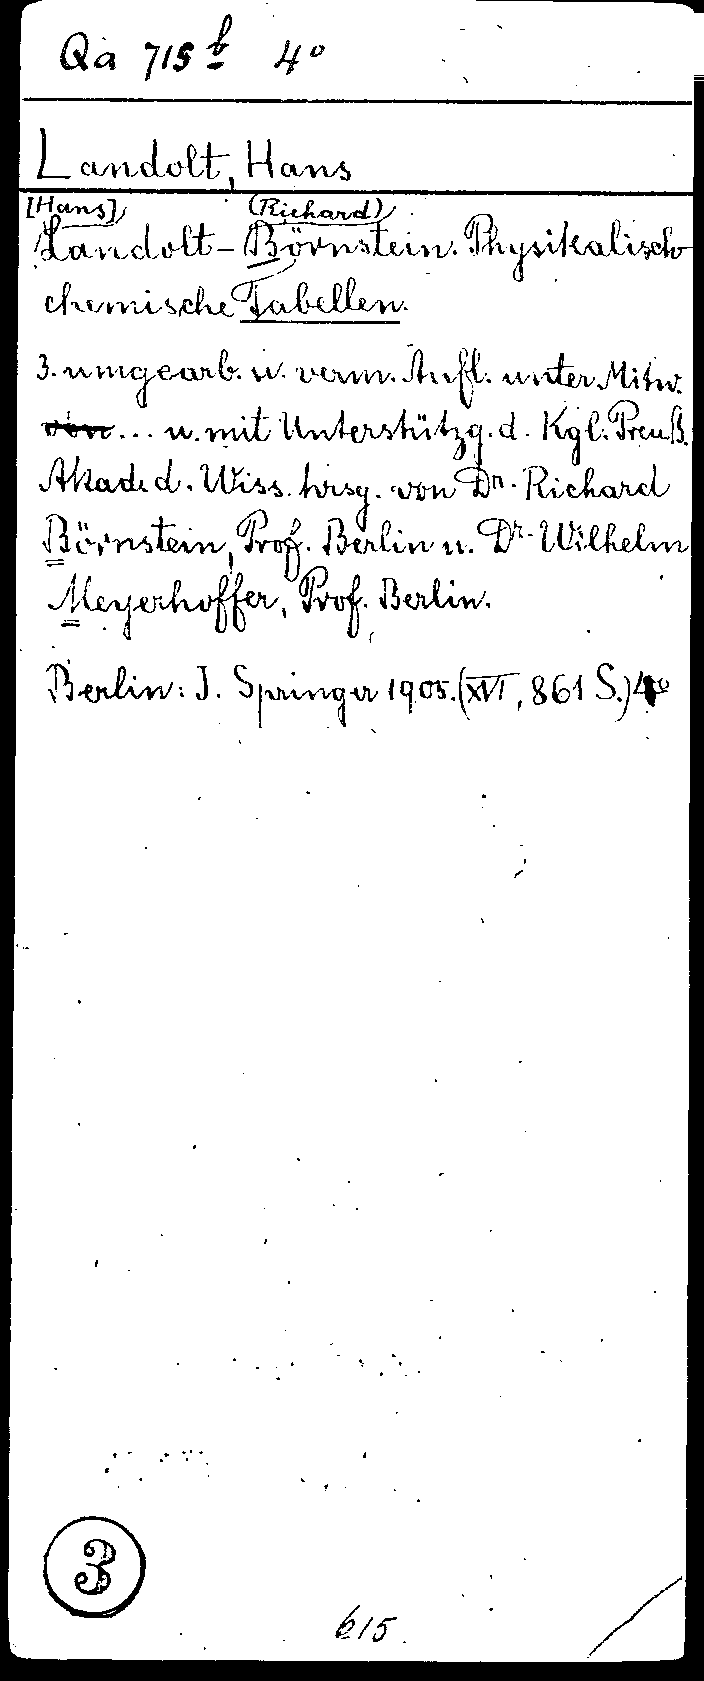 Qa 715 b 4°
Landolt, Hans
[Hans] (Richard)
Landolt-Börnstein. Physikalisch-
chemische Tabellen.
3. umgearb. u. verm. Aufl. unter Mitw.
von ... u. mit Unterstützg. d. Kgl. Preuß.
Akad. d. Wiss. hrsg. von Dr. Richard
Börnstein, Prof. Berlin u. Dr. Wilhelm
Meyerhoffer, Prof. Berlin.
Berlin: J. Springer 1905. (XVI, 861 S.) 4°
3
615